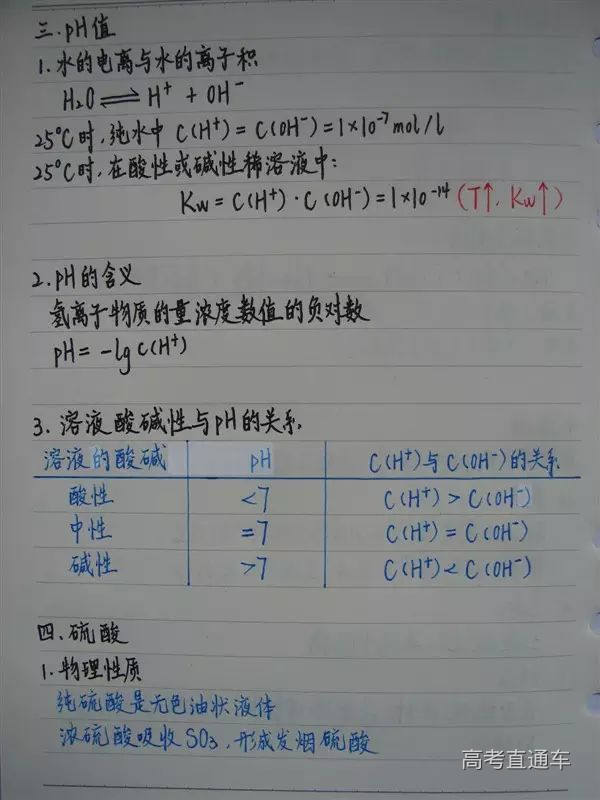 三.pH值
1.水的电离与水的离子积
H₂O⇌H⁺ + OH⁻
25°C时,纯水中 C(H⁺)=C(OH⁻)=1×10⁻⁷mol/l
25°C时,在酸性或碱性稀溶液中:
Kw=C(H⁺)·C(OH⁻)=1×10⁻¹⁴(T↑, Kw↑)
2.pH的含义
氢离子物质的量浓度数值的负对数
pH=-lgC(H⁺)
3.溶液酸碱性与pH的关系
溶液的酸碱 pH C(H⁺)与C(OH⁻)的关系
酸性 <7 C(H⁺)>C(OH⁻)
中性 =7 C(H⁺)=C(OH⁻)
碱性 >7 C(H⁺)<C(OH⁻)
四.硫酸
1.物理性质
纯硫酸是无色油状液体
浓硫酸吸收SO₃,形成发烟硫酸
高考直通车